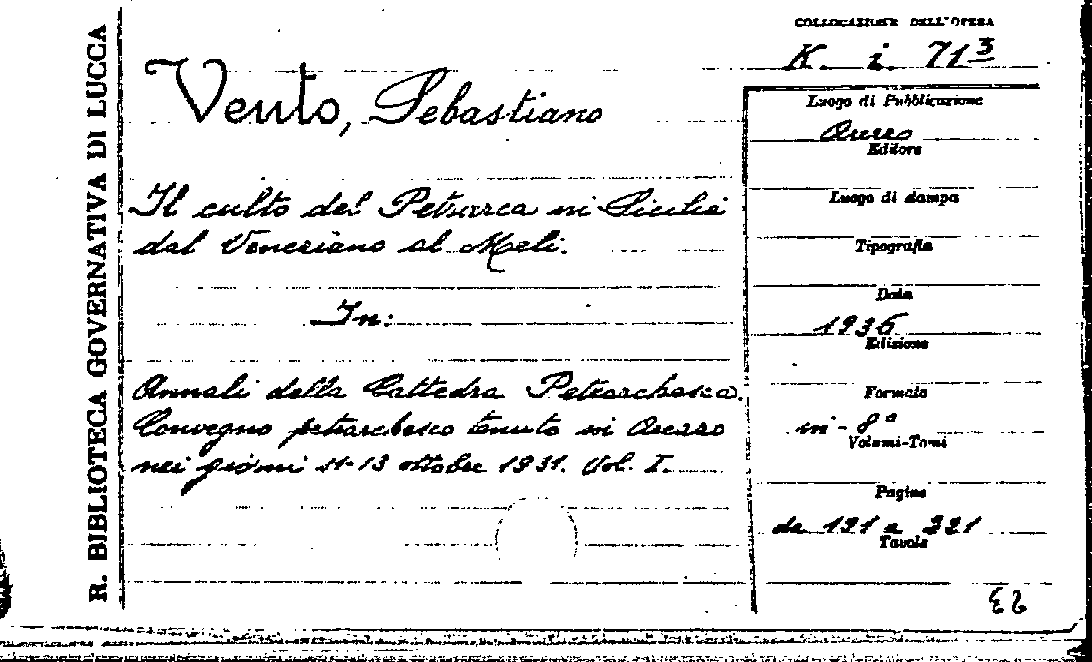 R. BIBLIOTECA GOVERNATIVA DI LUCCA
COLLOCAZIONE DELL'OPERA
K. i. 71³
Vento, Sebastiano
Il culto del Petrarca in Sicilia
dal Veneziano al Meli.
In:
Annali della Cattedra Petrarchesca.
Convegno petrarchesco tenuto in Arezzo
nei giorni 11-13 ottobre 1931. Vol. I.
Luogo di Pubblicazione
Arezzo
Editore
Luogo di stampa
Tipografia
Data
1936
Edizione
Formato
in-8°
Volumi-Tomi
Pagine
da 191 a 221
Tavole